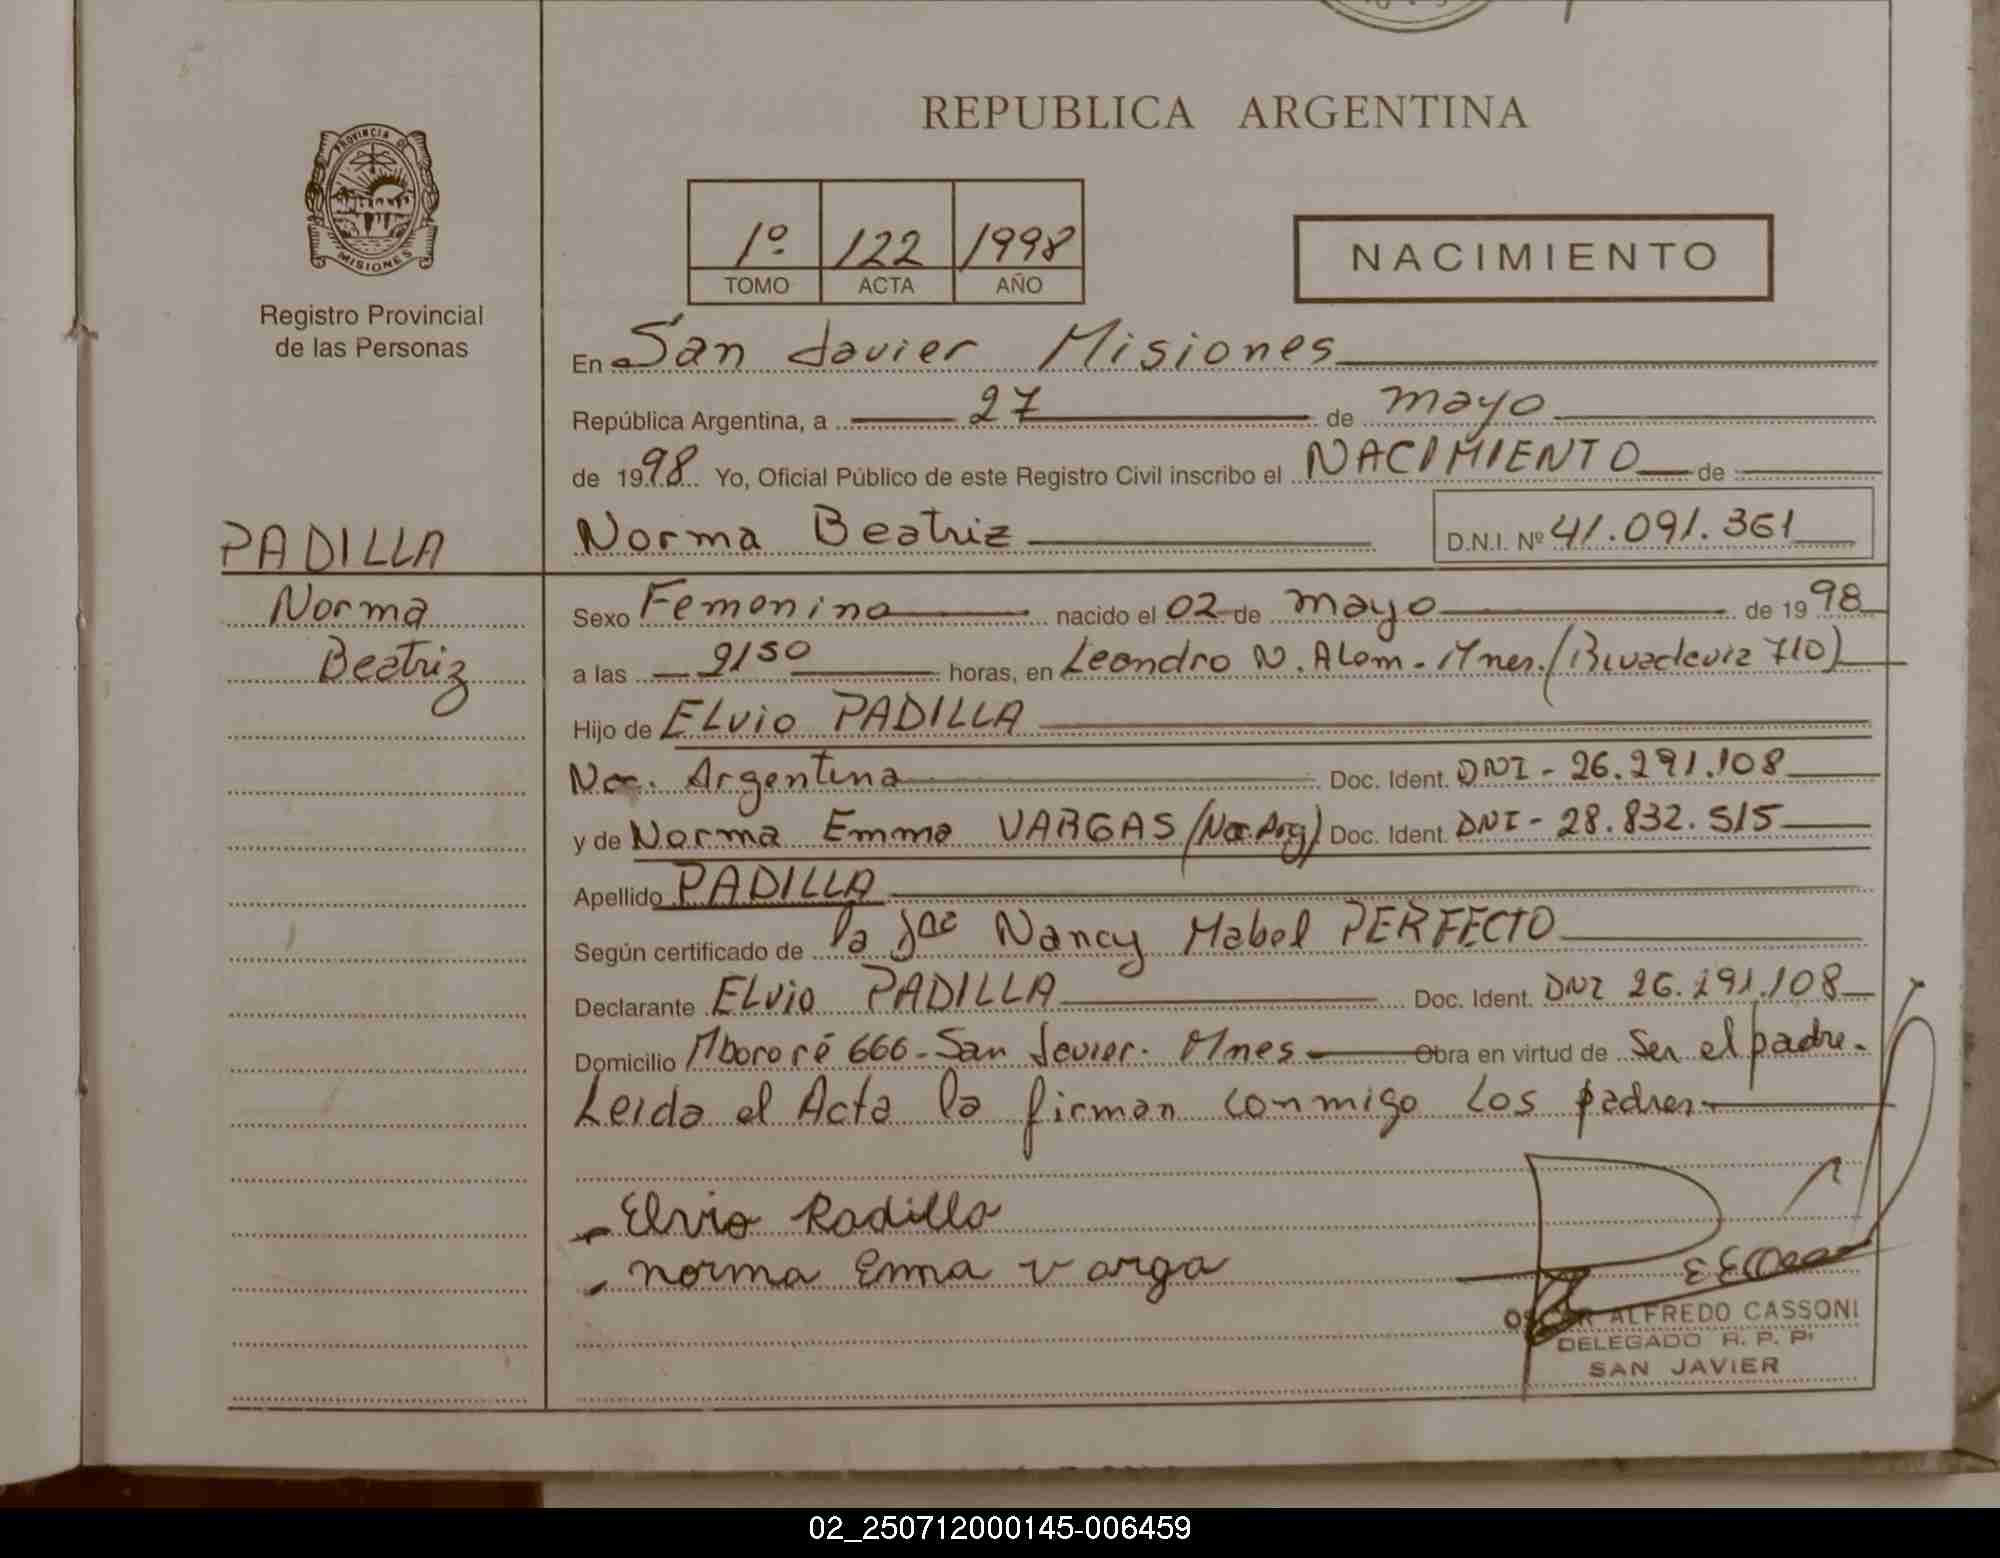 REPUBLICA ARGENTINA
PROVINCIA DE
MISIONES
Registro Provincial
de las Personas
1º 122 1998
TOMO ACTA AÑO
NACIMIENTO
En San Javier Misiones
República Argentina, a 27 de mayo
de 1998 Yo, Oficial Público de este Registro Civil inscribo el NACIMIENTO de
PADILLA
Norma Beatriz
D.N.I. Nº 41.091.361
Norma
Beatriz
Sexo Femenino nacido el 02 de mayo de 1998
a las 9/50 horas, en Leandro N. Alem - Mnes. (Rivadavia 710)
Hijo de ELvio PADILLA
Nac. Argentina Doc. Ident. DNI - 26.291.108
y de Norma Emma VARGAS (Nac. Arg) Doc. Ident. DNI - 28.832.515
Apellido PADILLA
Según certificado de la Nancy Mabel PERFECTO
Declarante ELvio PADILLA Doc. Ident. DNI 26.291.108
Domicilio Mbororé 666 - San Javier. Mnes Obra en virtud de Ser el padre.
Leida el Acta la firman conmigo Los padres
Elvio Padilla
norma Ema varga
OSCAR ALFREDO CASSONI
DELEGADO R. P. P.
SAN JAVIER
02_250712000145-006459